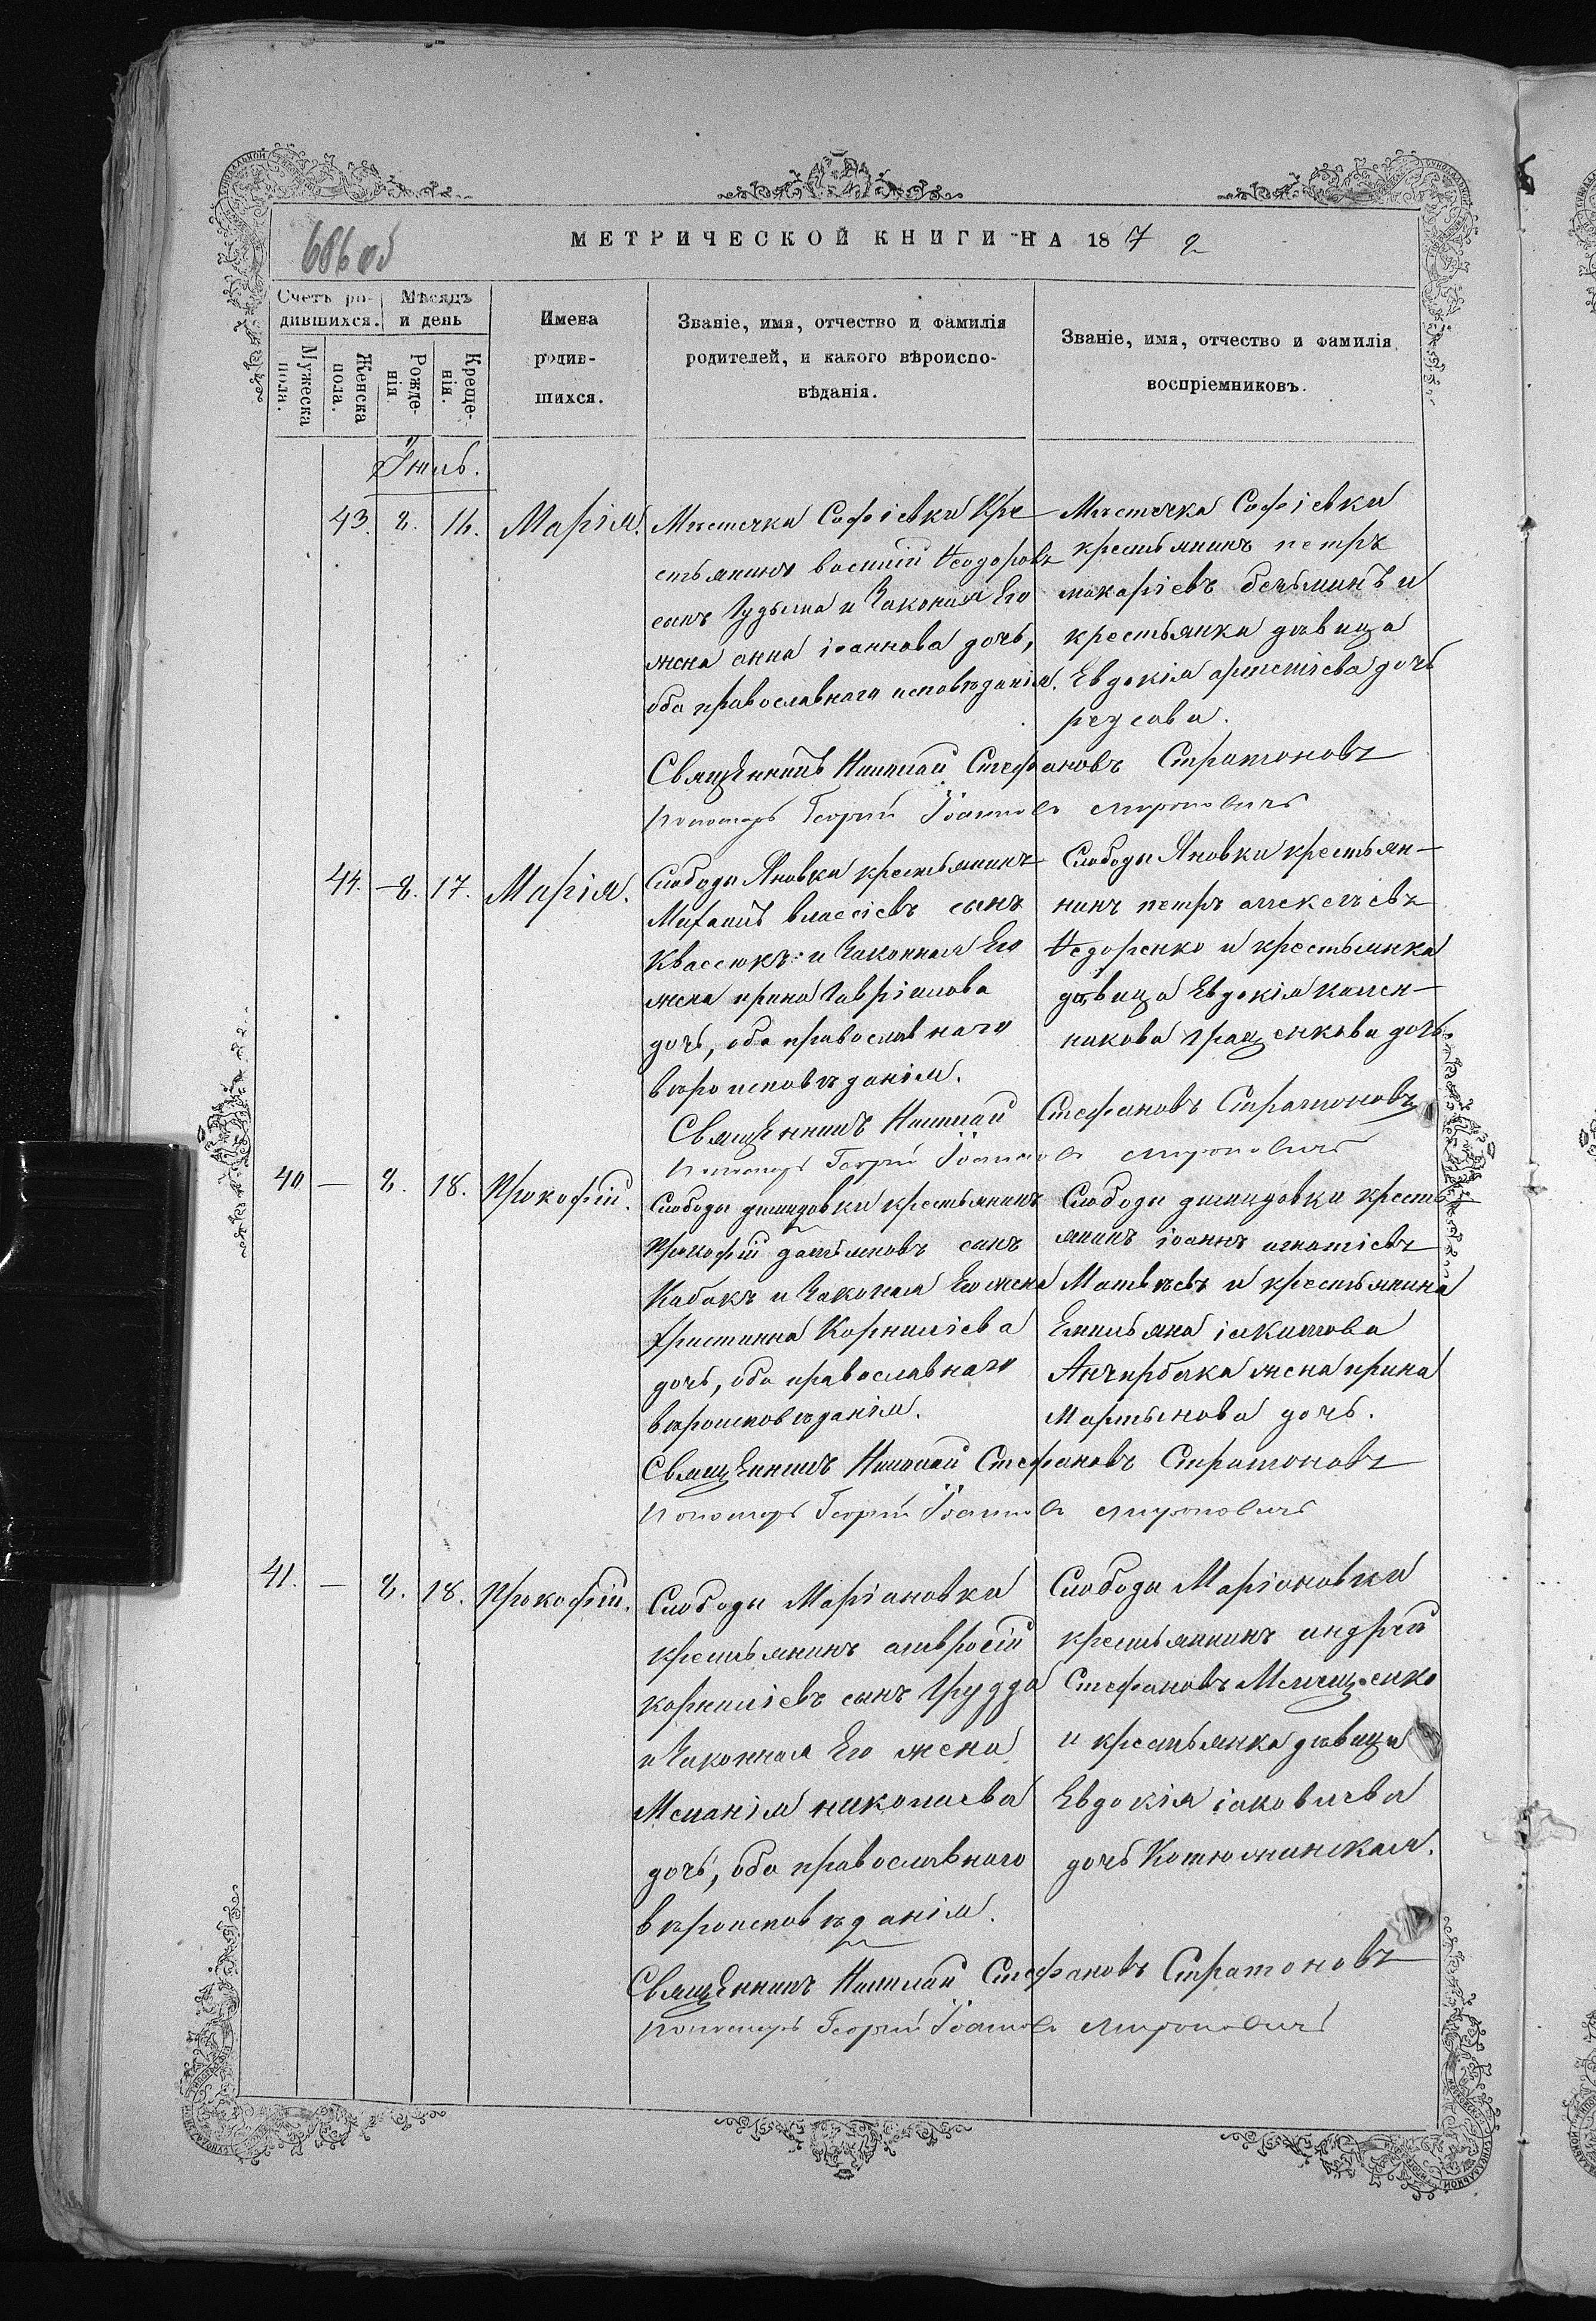 686 об
МЕТРИЧЕСКОЙ КНИГИ НА 1872
Счетъ ро-
дившихся.
Мѣсяцъ
и день
Имена
родив-
шихся.
Званіе, имя, отчество и фамилія
родителей, и какого вѣроиспо-
вѣданія.
Званіе, имя, отчество и фамилія
воспріемниковъ.
Мужеска
пола.
Женска
пола.
Рожде-
нія
Креще-
нія.
Іюль.
43. 8. Марія.
Мѣстечка Софіевки Кре
стьянинъ Ѳеодоровъ
сынъ и Законная Его
жена анна іоаннова дочь,
оба православнаго исповѣданія.
Мѣстечка Софіевки
крестьянинъ петръ
макаріевъ и
крестьянка дѣвица
Евдокія дочь
Священникъ Николай Стефановъ Стратоновъ
Пономарь Георгій Іоанновъ Мироновичъ
44. 8. 17. Марія.
Слободы Яновки крестьянинъ
власіевъ сынъ
Квассюкъ и Законная Его
жена ирина гавріилова
дочь, оба православнаго
вѣроисповѣданія.
Слободы Яновки крестьян-
нинъ петръ алексѣевъ
Ѳедоренко и крестьянка
дѣвица Евдокія
дочь
Священникъ Николай Стефановъ Стратоновъ
Пономарь Георгій Іоанновъ Мироновичъ
40 — 8. 18. Прокофій.
Слободы крестьянинъ
Прокофій сынъ
Кабакъ и Законная Его жена
Христинна Корниліева
дочь, оба православнаго
вѣроисповѣданія.
Слободы кресть
янинъ іоаннъ игнатіевъ
Матвѣевъ и крестьянина
Емильяна
жена ирина
Мартынова дочь.
Священникъ Николай Стефановъ Стратоновъ
Пономарь Георгій Іоанновъ Мироновичъ
41. — 8. 18. Прокофій.
Слободы Маріановки
крестьянинъ амвросій
корниліевъ сынъ Грудда
и Законная Его жена
Меланія николаева
дочь, оба православнаго
вѣроисповѣданія.
Слободы Маріановки
крестьянинъ андрей
Стефановъ
и крестьянка дѣвица
Евдокія іаковлева
дочь
Священникъ Николай Стефановъ Стратоновъ
Пономарь Георгій Іоанновъ Мироновичъ